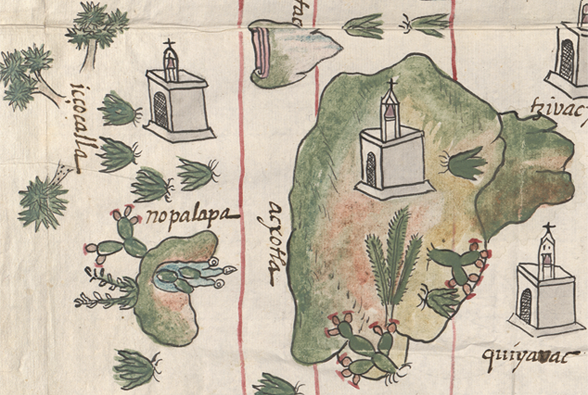 icçocalla
nopalapa
acxotla
tzivac
quiyavac